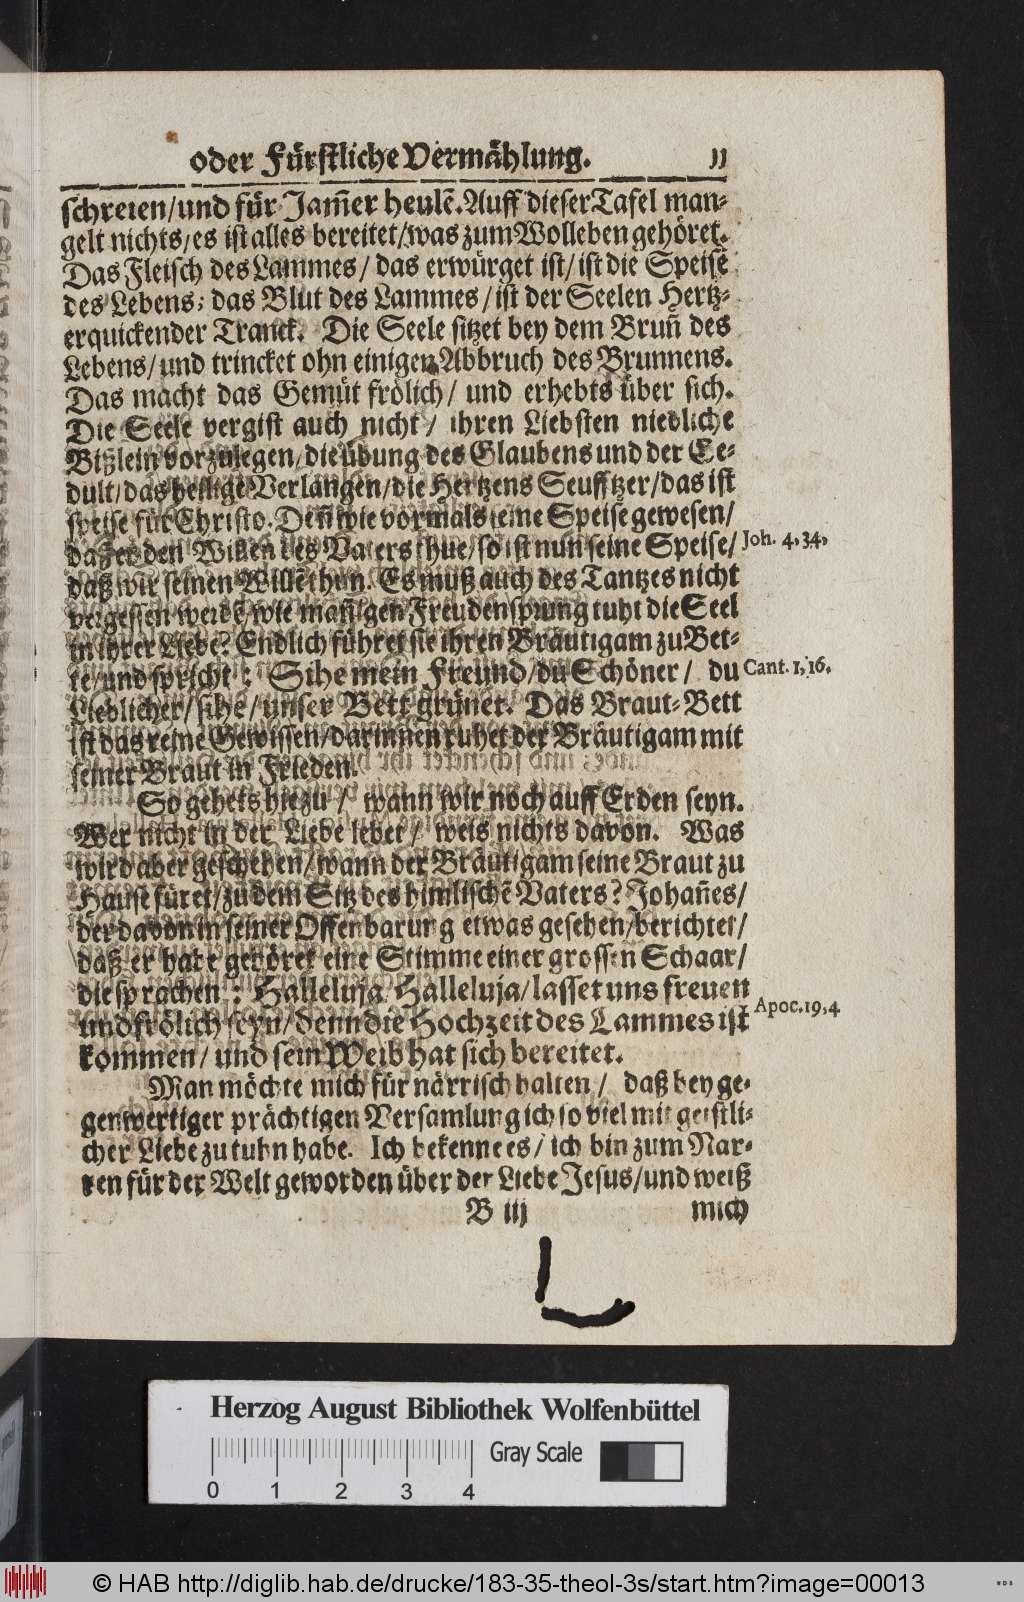 oder Fürstliche Vermählung. 11
schreien/und für Jam̃er heulẽ. Auff dieser Tafel man-
gelt nichts/es ist alles bereitet/was zum Wolleben gehöret.
Das Fleisch des Lammes/ das erwürget ist/ist die Speisẽ
des Lebens; das Blut des Lammes/ist der Seelen Hertz-
erquickender Tranck. Die Seele sitzet bey dem Brun̄ des
Lebens/und trincket ohn einigen Abbruch des Brunnens.
Das macht das Gemüt frölich/ und erhebts über sich.
Die Seele vergist auch nicht/ ihren Liebsten niedliche
Bißlein vorzulegen/die übung des Glaubens und der Ge-
dult/das heilige Verlangen/die Hertzens Seufftzer/das ist
speise für Christo. Den̄ wie vormals seine Speise gewesen/
daß er den Willen des Vaters thue/so ist nun seine Speise/ Joh. 4,34,
daß wir seinen Willẽ thun. Es muß auch des Tantzes nicht
vergessen werdẽ/wie man̄igen Freudensprung tuht die Seel
in ihrer Liebe? Endlich führet sie ihren Bräutigam zu Bet-
te/und spricht: Sihe mein Freund/du Schöner/ du Cant. 1,16.
Lieblicher/sihe/unser Bett grünet. Das Braut-Bett
ist das reine Gewissen/darinnen ruhet der Bräutigam mit
seiner Braut in Frieden.
So gehets hiezu/ wann wir noch auff Erden seyn.
Wer nicht in der Liebe lebet/ weis nichts davon. Was
wird aber geschehen/wann der Bräutigam seine Braut zu
Hause füret/zu dem Sitz des himlischẽ Vaters? Johan̄es/
der davon in seiner Offenbarung etwas gesehen/berichtet/
daß er habe gehöret eine Stimme einer grossen Schaar/
die sprachen: Halleluja Halleluja/lasset uns freuen
und frölich seyn/denn die Hochzeit des Lammes ist Apoc. 19,4
kommen/und sein Weib hat sich bereitet.
Man möchte mich für närrisch halten/ daß bey ge-
genwertiger prächtigen Versamlung ich so viel mit geistli-
cher Liebe zu tuhn habe. Ich bekenne es/ich bin zum Nar-
ren für der Welt geworden über der Liebe Jesus/und weiß
B iij mich
Herzog August Bibliothek Wolfenbüttel
Gray Scale
0 1 2 3 4
© HAB http://diglib.hab.de/drucke/183-35-theol-3s/start.htm?image=00013